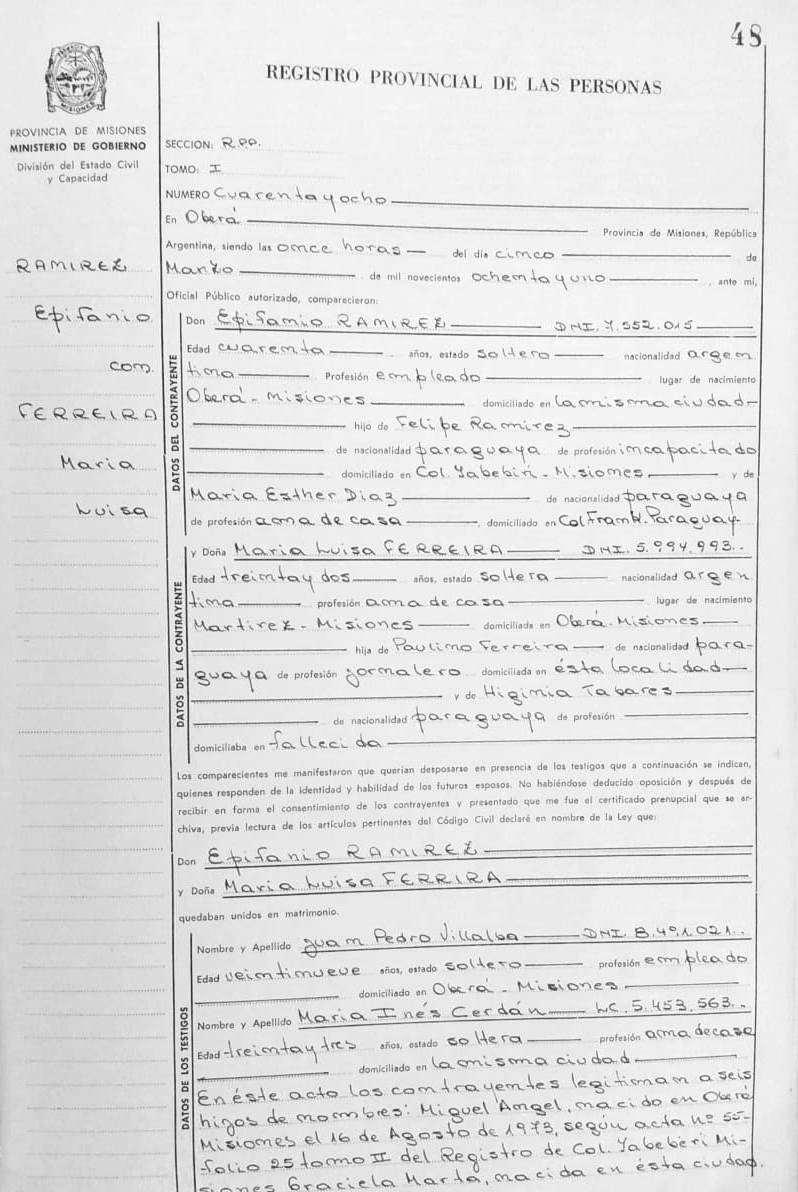 48
REGISTRO PROVINCIAL DE LAS PERSONAS
PROVINCIA DE MISIONES
MINISTERIO DE GOBIERNO
División del Estado Civil
y Capacidad
RAMIREZ
Epifanio
con
FERREIRA
Maria
Luisa
SECCION: R.P.P.
TOMO: I
NUMERO Cuarenta y ocho
En Oberá Provincia de Misiones, República
Argentina, siendo las once horas del día cinco de
Marzo de mil novecientos ochenta y uno, ante mi,
Oficial Público autorizado, comparecieron:
DATOS DEL CONTRAYENTE
Don Epifanio RAMIREZ DNI. 7.552.015
Edad cuarenta años, estado soltero nacionalidad argen
tina Profesión empleado lugar de nacimiento
Oberá - Misiones domiciliado en la misma ciudad
hijo de Felipe Ramirez
de nacionalidad paraguaya de profesión incapacitado
domiciliado en Col. Yabebiri - Misiones y de
Maria Esther Diaz de nacionalidad paraguaya
de profesión ama de casa, domiciliado en Col Frank. Paraguay
DATOS DE LA CONTRAYENTE
y Doña Maria Luisa FERREIRA DNI. 5.994.993..
Edad treinta y dos años, estado soltera nacionalidad argen
tina profesión ama de casa lugar de nacimiento
Martirez - Misiones domiciliada en Oberá. Misiones
hija de Paulino Ferreira de nacionalidad para-
guaya de profesión jornalero domiciliada en ésta localidad
y de Higinia Tabares
de nacionalidad paraguaya de profesión
domiciliaba en fallecida
Los comparecientes me manifestaron que querían desposarse en presencia de los testigos que a continuación se indican,
quienes responden de la identidad y habilidad de los futuros esposos. No habiéndose deducido oposición y después de
recibir en forma el consentimiento de los contrayentes y presentado que me fue el certificado prenupcial que se ar-
chiva, previa lectura de los artículos pertinentes del Código Civil declaré en nombre de la Ley que:
Don Epifanio RAMIREZ
y Doña Maria Luisa FERREIRA
quedaban unidos en matrimonio.
DATOS DE LOS TESTIGOS
Nombre y Apellido Juan Pedro Villalba DNI 8.401.021..
Edad veintinueve años, estado soltero profesión empleado
domiciliado en Oberá - Misiones
Nombre y Apellido Maria Inés Cerdán LC. 5.453.563..
Edad treinta y tres años, estado soltera profesión ama de casa
domiciliado en la misma ciudad
En éste acto los contrayentes legitiman a seis
hijos de nombres: Miguel Angel, nacido en Oberá
Misiones el 16 de Agosto de 1973, según acta nº 55-
folio 25 tomo II del Registro de Col. Yabeberi Mi-
siones Graciela Marta, nacida en ésta ciudad.